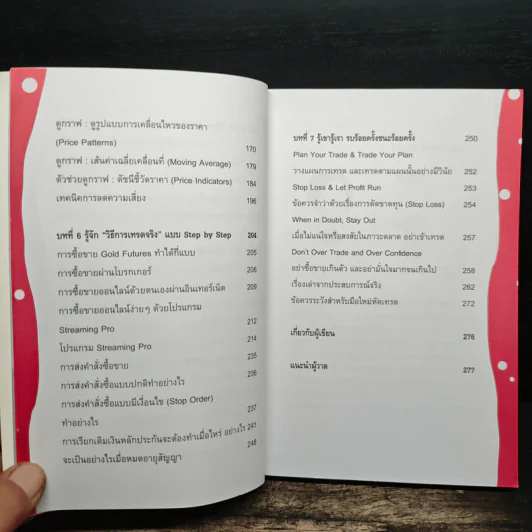 ดูกราฟ : ดูรูปแบบการเคลื่อนไหวของราคา
(Price Patterns) 170
ดูกราฟ : เส้นค่าเฉลี่ยเคลื่อนที่ (Moving Average) 179
ตัวช่วยดูกราฟ : ดัชนีชี้วัดราคา (Price Indicators) 184
เทคนิคการลดความเสี่ยง 196
บทที่ 6 รู้จัก “วิธีการเทรดจริง” แบบ Step by Step 204
การซื้อขาย Gold Futures ทำได้กี่แบบ 205
การซื้อขายผ่านโบรกเกอร์ 206
การซื้อขายออนไลน์ด้วยตนเองผ่านอินเทอร์เน็ต 209
การซื้อขายออนไลน์ง่ายๆ ด้วยโปรแกรม
Streaming Pro 212
โปรแกรม Streaming Pro 214
การส่งคำสั่งซื้อขาย 235
การส่งคำสั่งซื้อแบบปกติทำอย่างไร 236
การส่งคำสั่งซื้อแบบมีเงื่อนไข (Stop Order)
ทำอย่างไร 237
การเรียกเติมเงินหลักประกันจะต้องทำเมื่อไหร่ อย่างไร 241
จะเป็นอย่างไรเมื่อหมดอายุสัญญา 248
บทที่ 7 รู้เขารู้เรา รบร้อยครั้งชนะร้อยครั้ง 250
Plan Your Trade & Trade Your Plan
วางแผนการเทรด และเทรดตามแผนนั้นอย่างมีวินัย 252
Stop Loss & Let Profit Run 253
ข้อควรจำว่าด้วยเรื่องการตัดขาดทุน (Stop Loss) 254
When in Doubt, Stay Out
เมื่อไม่แน่ใจหรือสงสัยในภาวะตลาด อย่าเข้าเทรด 257
Don't Over Trade and Over Confidence
อย่าซื้อขายเกินตัว และอย่ามั่นใจมากจนเกินไป 258
เรื่องเล่าจากประสบการณ์จริง 262
ข้อควรระวังสำหรับมือใหม่หัดเทรด 272
เกี่ยวกับผู้เขียน 276
แนะนำผู้วาด 277